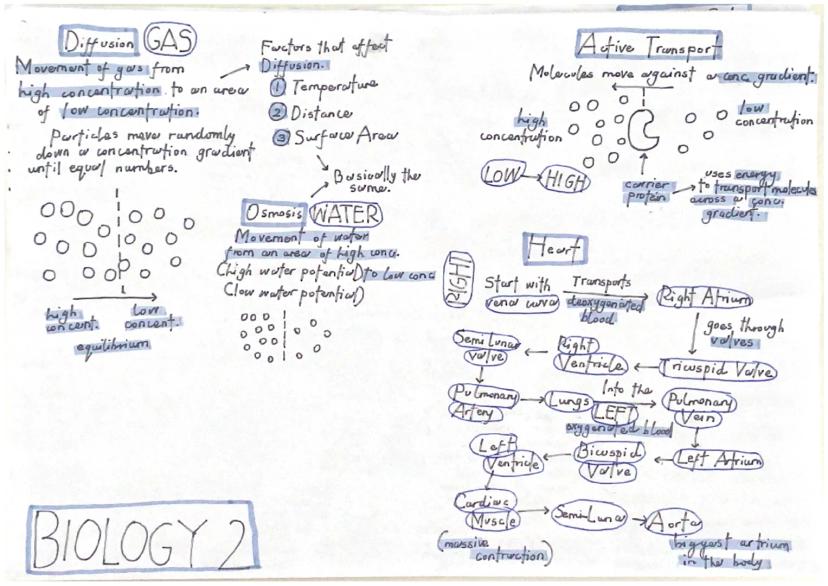 Diffusion GAS
Movement of gas from
high concentration to an area
of low concentration.
Particles move randomly
down a concentration gradient
until equal numbers.
high concent.
low concent.
equilibrium
Factors that affect
Diffusion.
1 Temperature
2 Distance
3 Surface Area
Basically the
same.
Osmosis WATER
Movement of water
from an area of high conc.
(high water potential) to low conc
(low water potential)
BIOLOGY 2
Active Transport
Molecules move against a conc. gradient.
high
concentration
low
concentration
LOW → HIGH
carrier
protein
uses energy
to transport molecules
across a conc.
gradient.
Heart
RIGHT
Start with
vena cava
Transports
deoxygenated
blood
Right Atrium
goes through
valves
Tricuspid Valve
Right
Ventricle
Semi Lunar
Valve
Pulmonary
Artery
Lungs
Into the
LEFT
oxygenated blood
Pulmonary
Vein
Left Artrium
Bicuspid
Valve
Left
Ventricle
Cardiac
Muscle
(massive
contraction)
Semi-Lunar
Aorta
biggest artrium
in the body